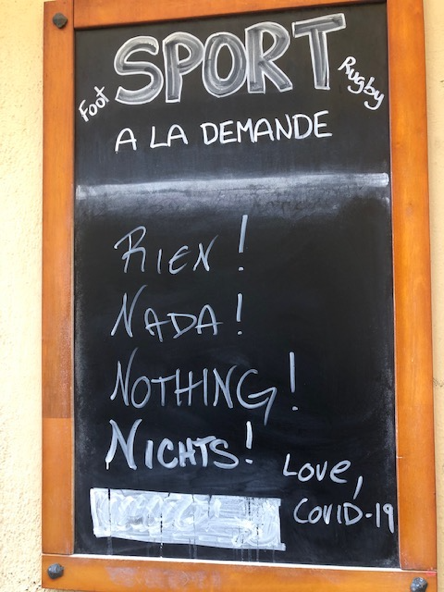 SPORT
Foot
Rugby
A LA DEMANDE
RIEN!
NADA!
NOTHING!
NICHTS!
Love,
COVID-19